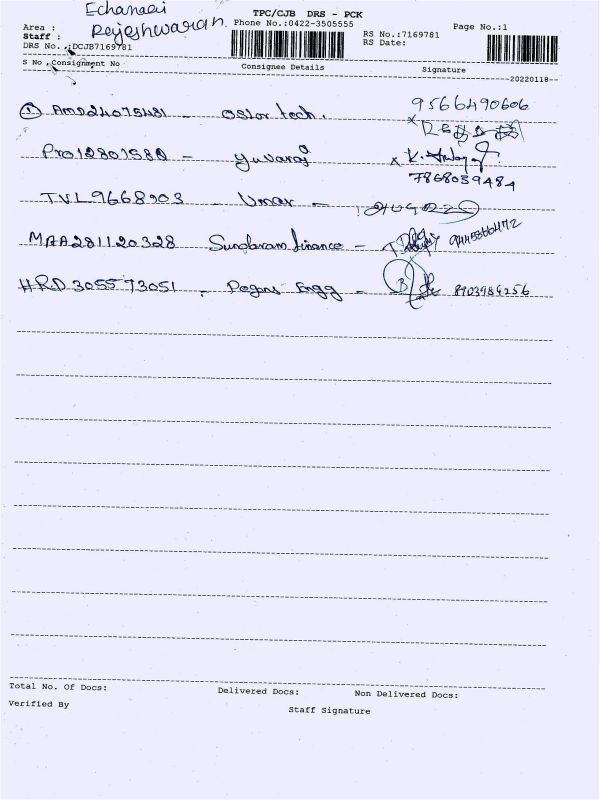 Echanari
TPC/CJB DRS - PCK
Area :
Phone No.:0422-3505555
Page No.:1
Staff : Rajeshwaran
RS No.:7169781
DRS No. :DCJB7169781
RS Date:
S No. Consignment No Consignee Details Signature
20220118
9566490606
① AMD24075481 - Ostor tech.
PRO12801580 - Yuvaraj
7868039484
TVL9668903 - Umar -
MAA281120328 Sundaram finance -
HRD305573051 - Pegons Engg - 8903984256
Total No. Of Docs: Delivered Docs: Non Delivered Docs:
Verified By
Staff Signature